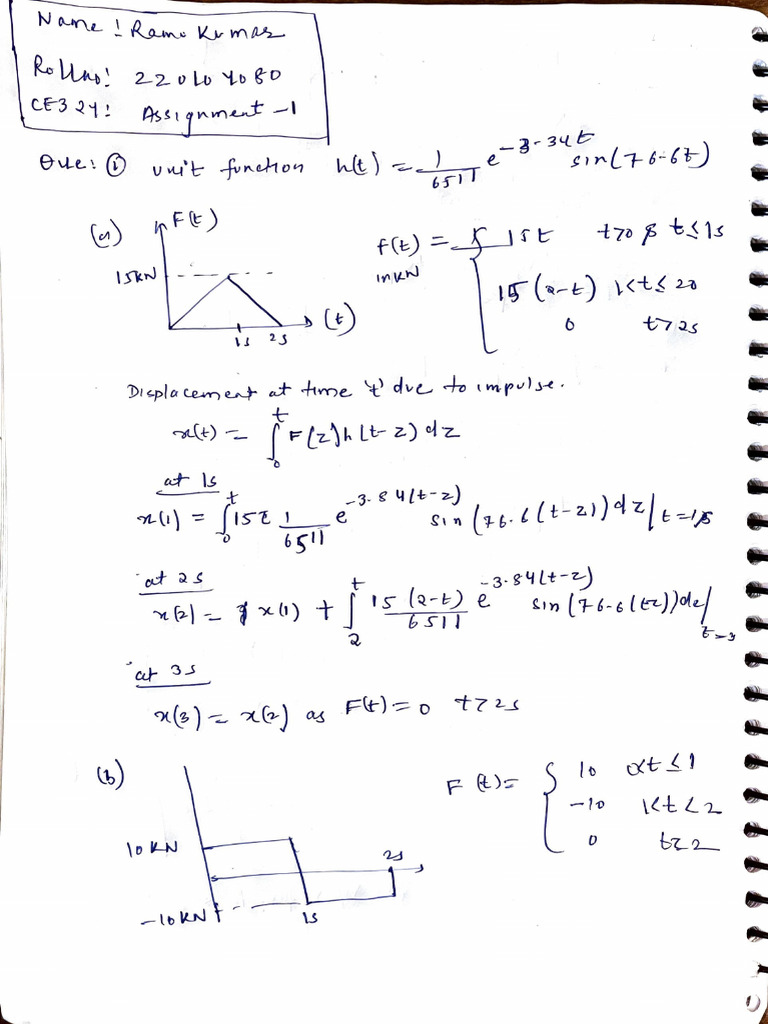 Name : Ramo Kumar
Rollno: 220104080
CE324: Assignment -1
Que: ① unit function h(t) = 1/6511 e^-3.34t sin(76.6t)
(a) F(t)
15KN
1s 2s (t)
f(t) = { 15t t>0 & t≤1s
in KN
15(2-t) 1<t≤20
0 t>2s
Displacement at time 't' due to impulse.
x(t) = ∫₀^t F(z)h(t-z)dz
at 1s
x(1) = ∫₀^t 15z 1/6511 e^-3.84(t-z) sin(76.6(t-z))dz/t=1s
at 2s
x(2) = x(1) + ∫₂^t 15(2-t)/6511 e^-3.84(t-z) sin(76.6(tz))dz/
at 3s
x(3) = x(2) as F(t)=0 t>2s
(b)
10KN
-10KN
1s
2s
F(t) = { 10 0<t≤1
-10 1<t<2
0 t≥2